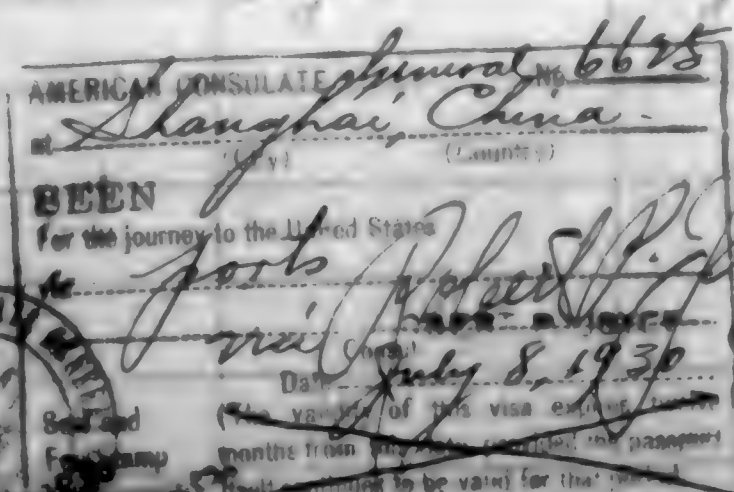 AMERICAN CONSULATE General No. 6695
at Shanghai, China.
(City) (Country)
SEEN
For the journey to the United States
Consul
Date July 8, 1930
Seal and
Fee stamp
(The validity of this visa expires twelve
months from this date provided the passport
itself continues to be valid for that period.